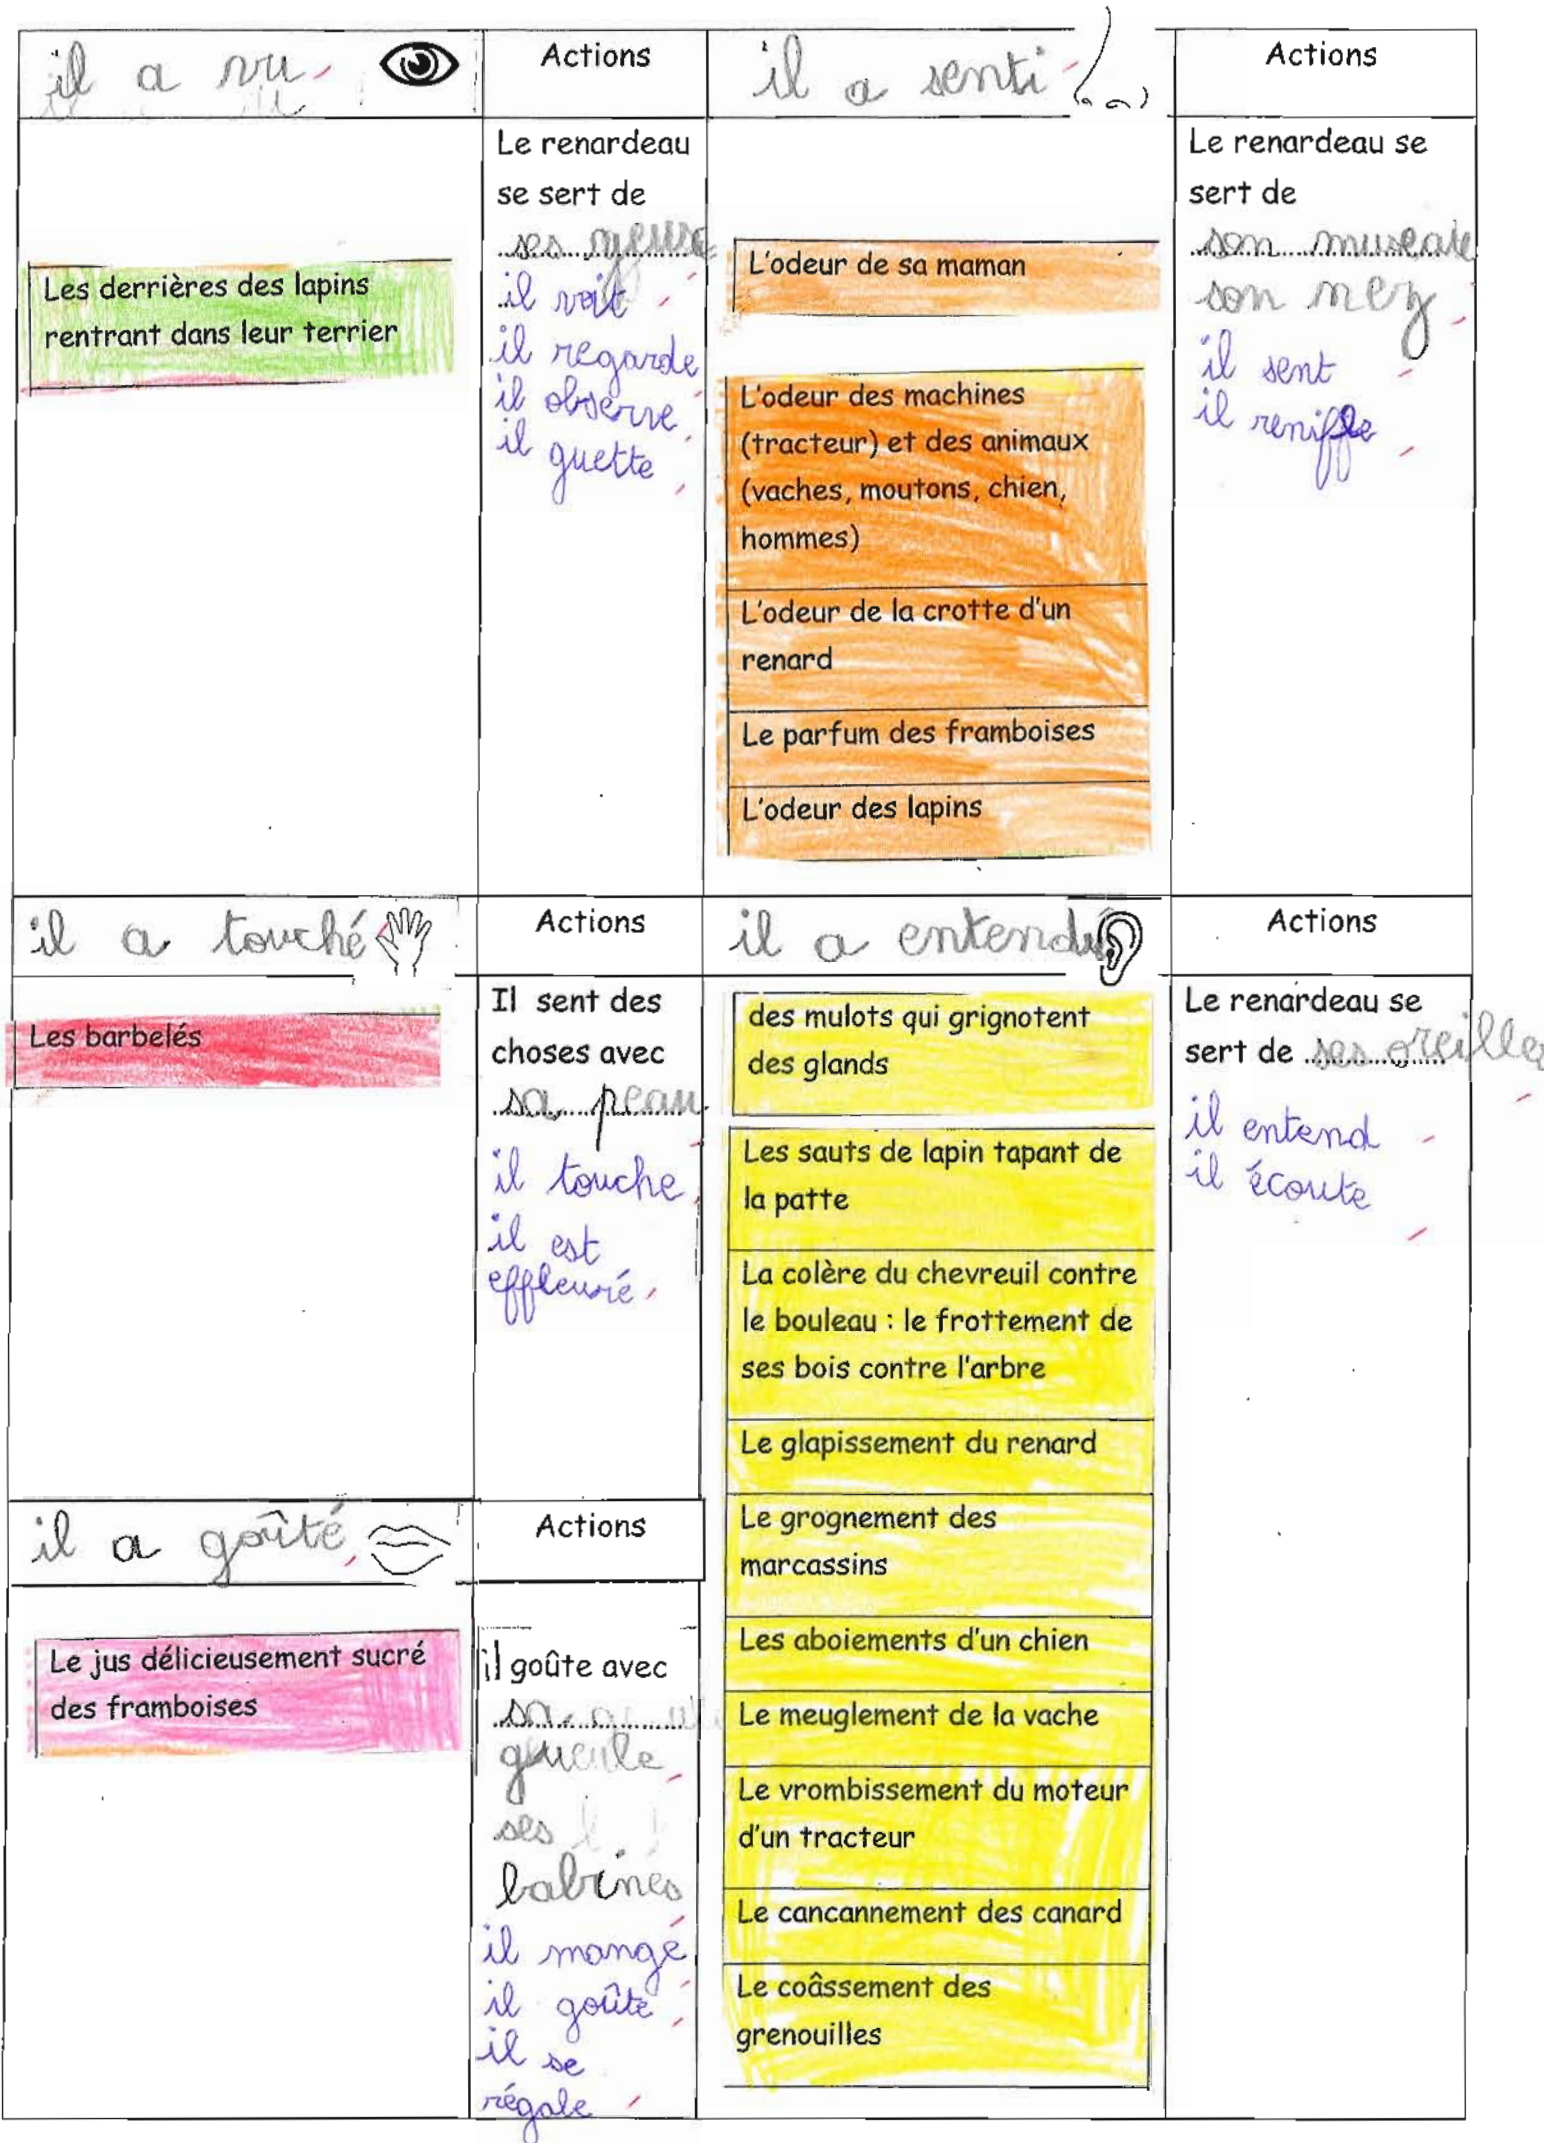 il a vu
Actions
Les derrières des lapins
rentrant dans leur terrier
Le renardeau
se sert de
ses yeux
il voit
il regarde
il observe
il guette
il a senti
Actions
L'odeur de sa maman
L'odeur des machines
(tracteur) et des animaux
(vaches, moutons, chien,
hommes)
L'odeur de la crotte d'un
renard
Le parfum des framboises
L'odeur des lapins
Le renardeau se
sert de
son museau
son nez
il sent
il renifle
il a touché
Actions
Les barbelés
Il sent des
choses avec
sa peau
il touche
il est
effleuré
il a entendu
Actions
des mulots qui grignotent
des glands
Les sauts de lapin tapant de
la patte
La colère du chevreuil contre
le bouleau : le frottement de
ses bois contre l'arbre
Le glapissement du renard
Le grognement des
marcassins
Les aboiements d'un chien
Le meuglement de la vache
Le vrombissement du moteur
d'un tracteur
Le cancannement des canard
Le coâssement des
grenouilles
Le renardeau se
sert de ses oreilles
il entend
il écoute
il a goûté
Actions
Le jus délicieusement sucré
des framboises
il goûte avec
sa
gueule
ses
babines
il mange
il goûte
il se
régale